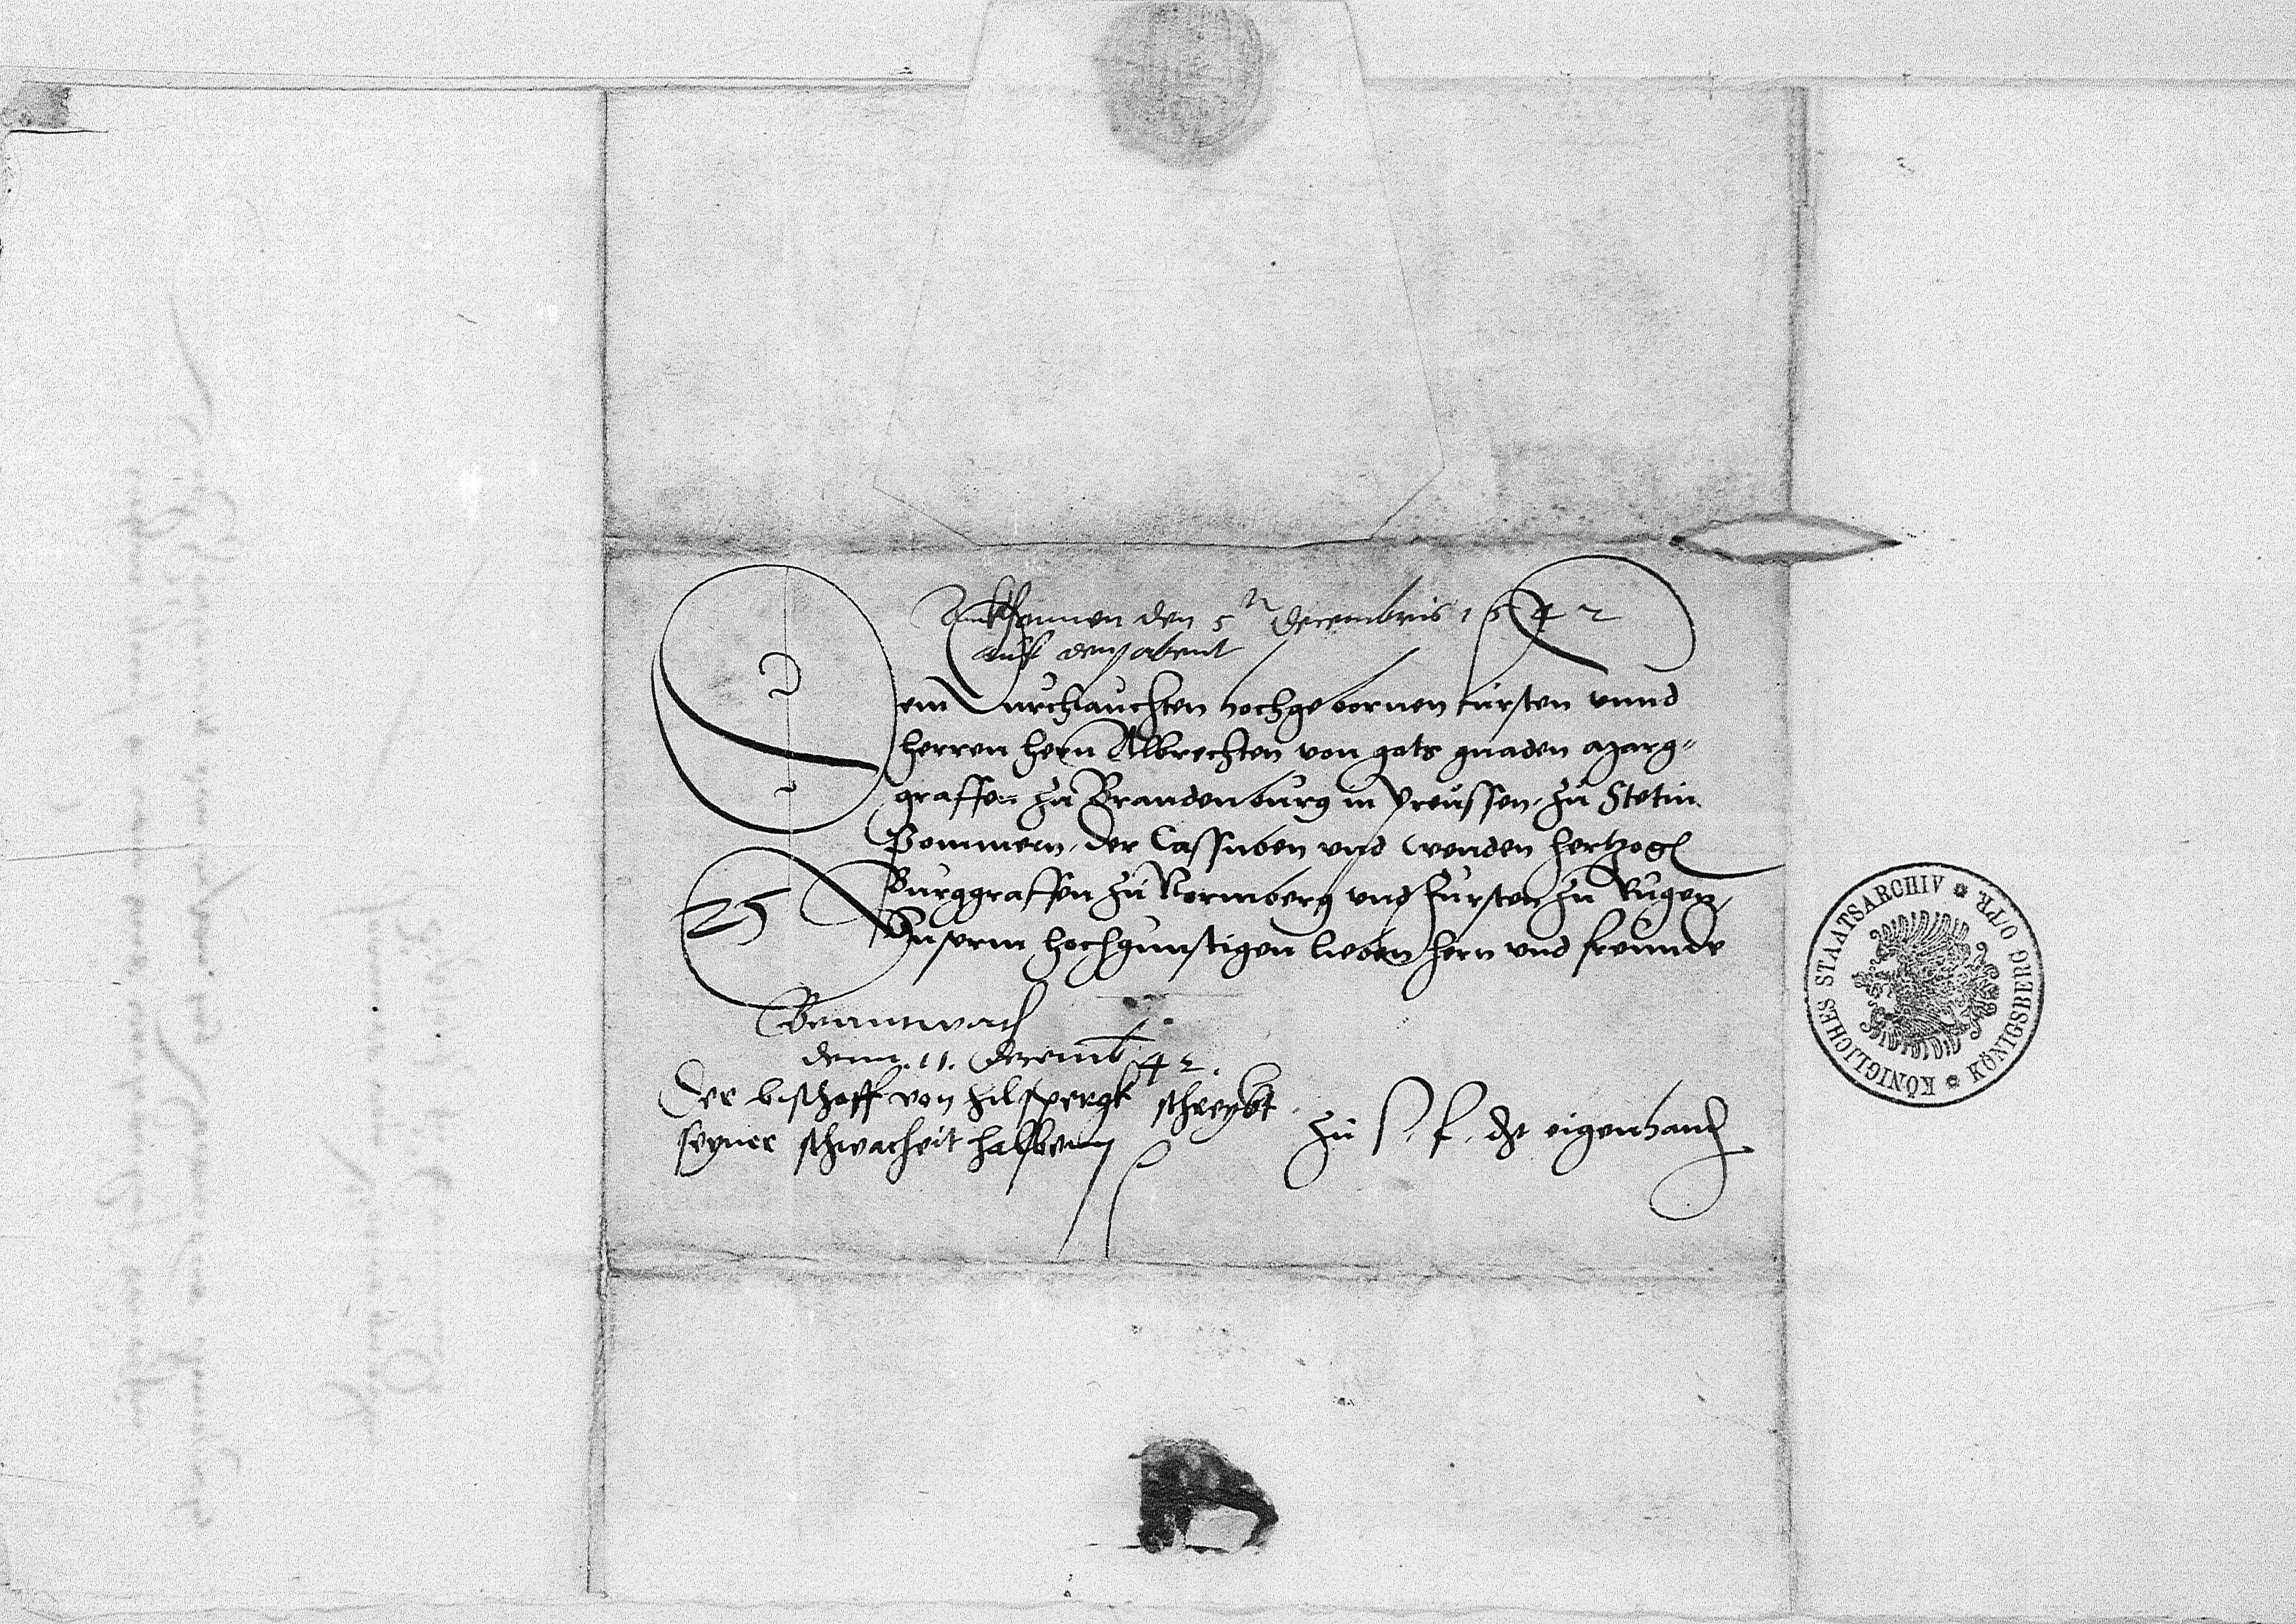 Ankhommen den 5ⁿ decembris 1542
auff den abent
Dem Durchlauchten hochgebornen fürsten unnd
herren hern Albrechten von gots gnaden Marg=
graffen zu Brandenburg in Preussen, zu Stetin
Pommern, der Cassuben und Wenden hertzogk
Burggraffen zu Normberg und fursten zu Rugen,
Unserm hochgunstigen lieben hern und freunde
25
denn .11. Decemb 42.
Der bischoff von Hilspergk schreybt
seyner schwacheit halbenn
zu S. f. dht eigenhand
KÖNIGLICHES STAATSARCHIV * KÖNIGSBERG O/PR. *